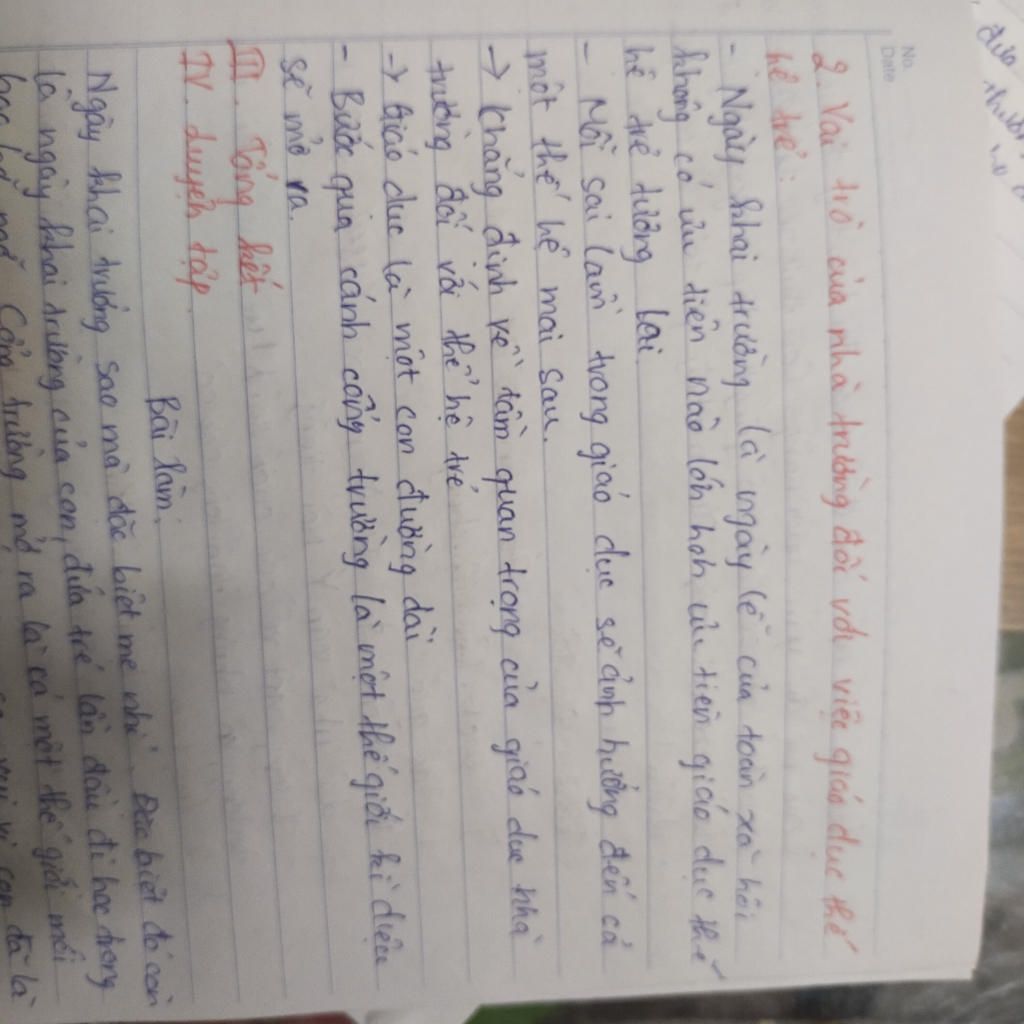 No.
Date
2. Vai trò của nhà trường đối với việc giáo dục thế
hệ trẻ:
- Ngày khai trường là ngày lễ của toàn xã hội
không có ưu tiên nào lớn hơn ưu tiên giáo dục thế
hệ trẻ tương lai
- Mỗi sai lầm trong giáo dục sẽ ảnh hưởng đến cả
một thế hệ mai sau.
→ Khẳng định về tầm quan trọng của giáo dục nhà
trường đối với thế hệ trẻ
→ Giáo dục là một con đường dài
- Bước qua cánh cổng trường là một thế giới kì diệu
sẽ mở ra.
III. Tổng kết
IV. Luyện tập
Bài làm.
Ngày khai trường sao mà đặc biệt mẹ nhỉ. Đặc biệt đó còn
là ngày khai trường của con, đứa trẻ lần đầu đi học trong
Cổng trường mở ra là cả một thế giới mới
vì con đã là